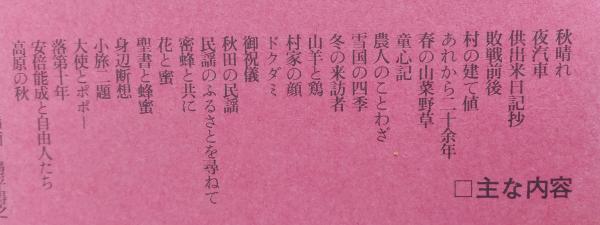 □主な内容
秋晴れ
夜汽車
供出米日記抄
敗戦前後
村の建て値
あれから二十余年
春の山菜野草
童心記
農人のことわざ
雪国の四季
冬の来訪者
山羊と鶏
村家の顔
ドクダミ
御祝儀
秋田の民謡
民謡のふるさとを尋ねて
密蜂と共に
花と蜜
聖書と蜂蜜
身辺断想
小旅二題
大使とポポー
落第十年
安倍能成と自由人たち
高原の秋